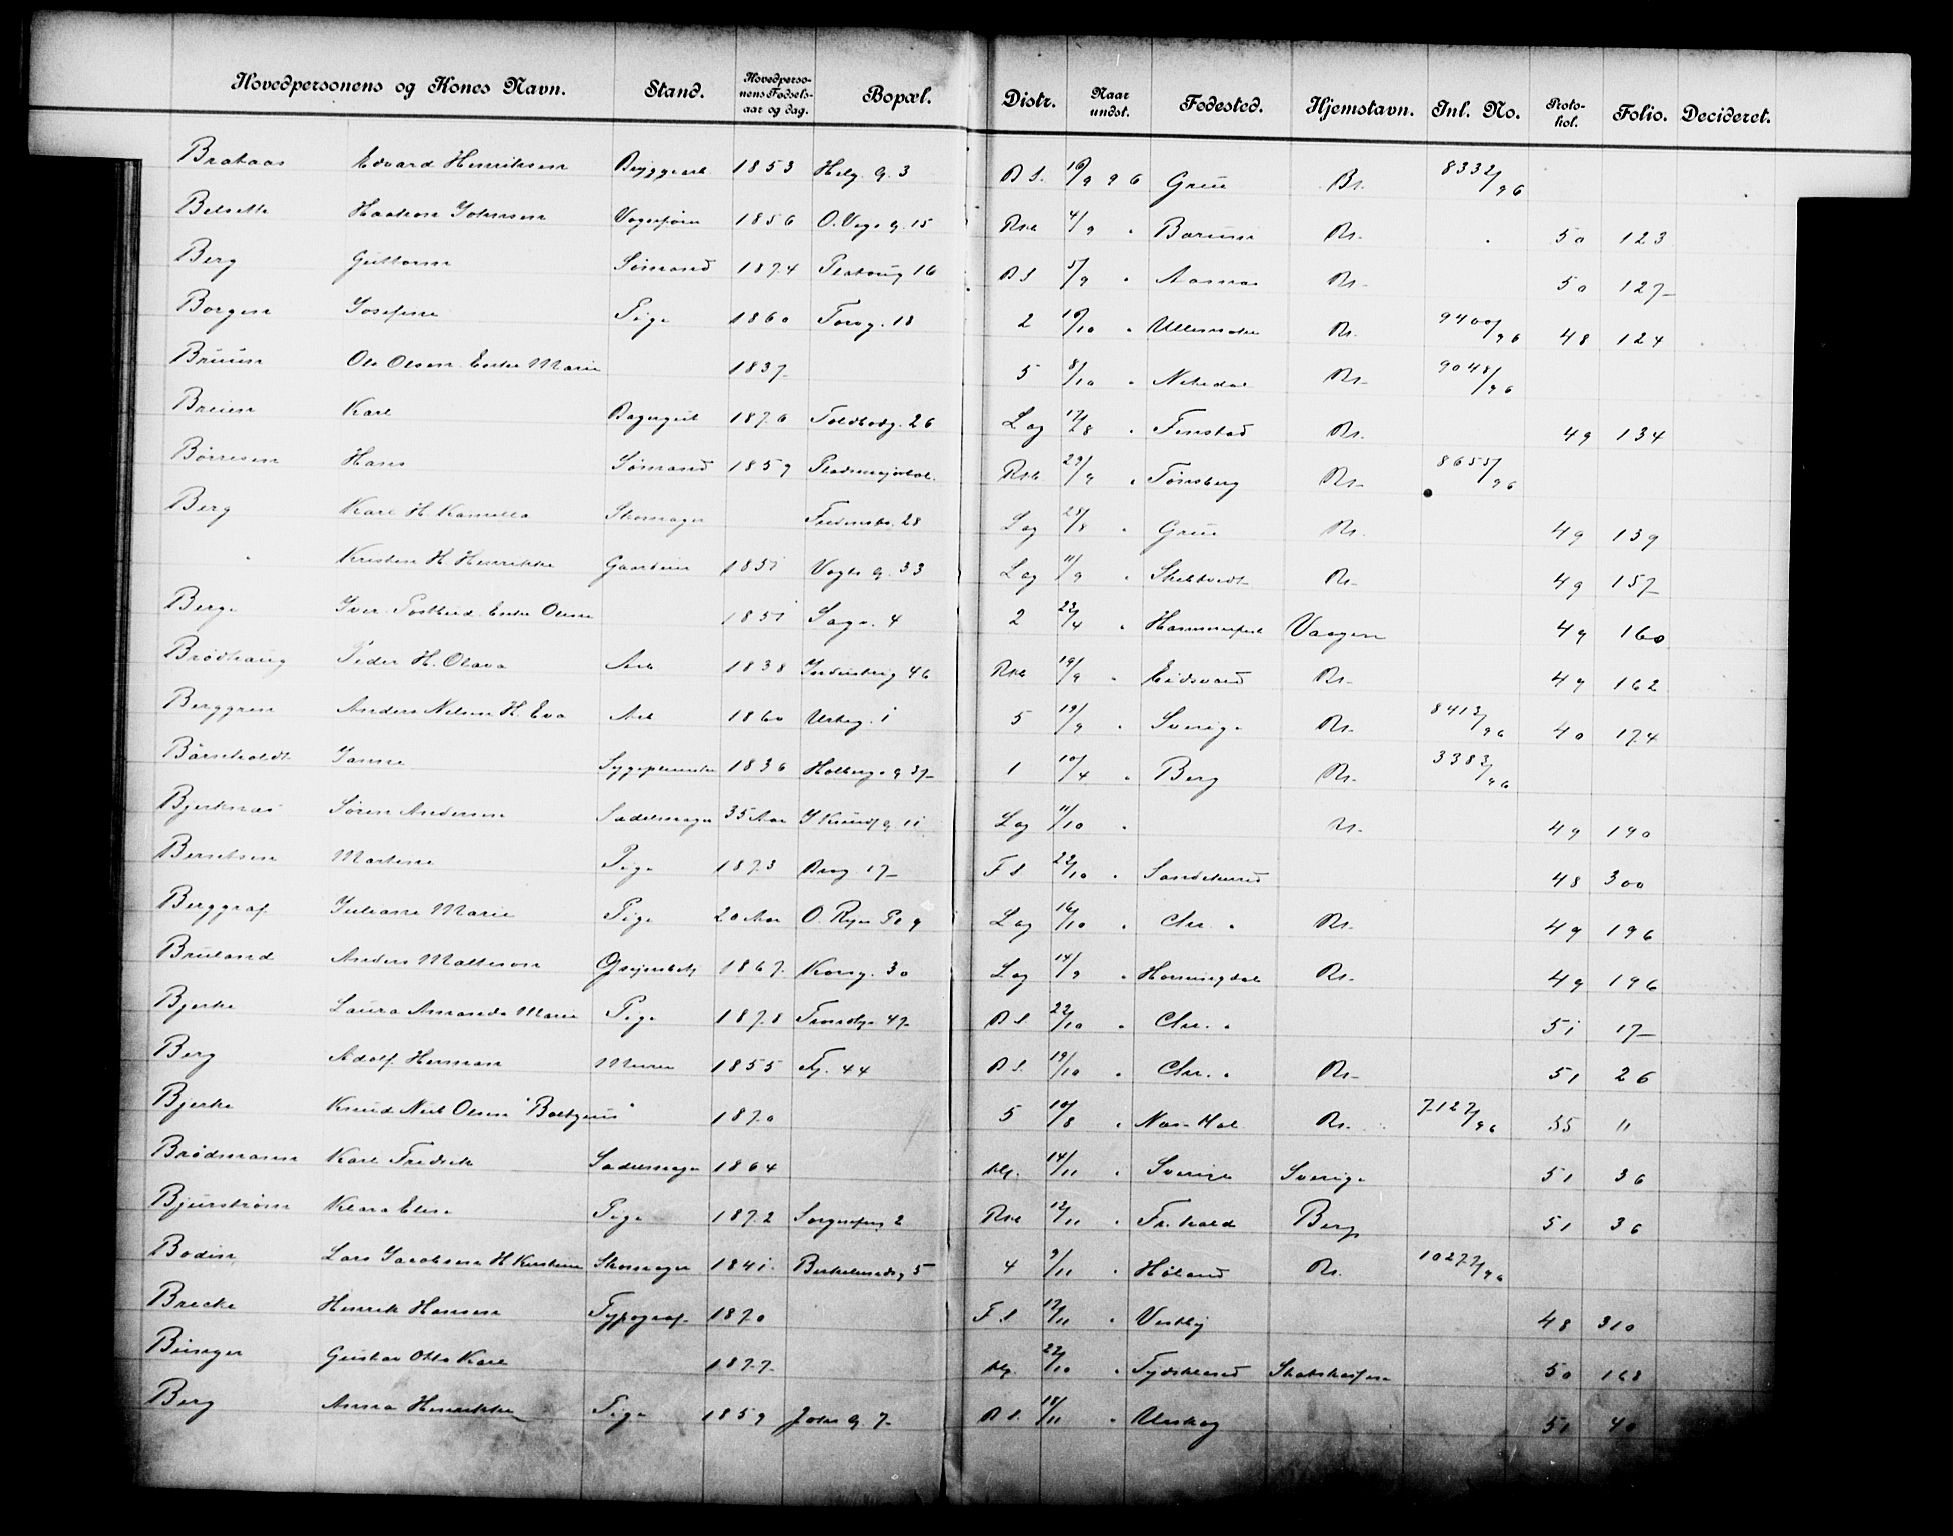 Hovedpersonens og Kones Navn. Stand. Hovedpersonens Fødselsaar og dag. Bopæl. Distr. Naar undst. Fødested. Hjemstavn. Inl. No. Protokol. Folio. Decideret.
Brataas Edvard Henriksen Bryggearb 1853 Helg. g. 3 B S. 16/9 96 Grue Kr. 8332/96
Belsette Haakon Johnsen Vognfører 1856 O. Vogt g. 15 4/9 " Bærum Kr. 50 123
Berg Guttorm Sømand 1874 16 B S 5/9 " Aasnæs Kr. 50 127
Borgen Josefine Pige 1860 Torvg. 18 2 10/10 " Ullensaker Kr. 9400/96 48 124
Bruun Ole Olsen Enke Marie 1837 5 8/10 " Nitedal Kr. 9048/96
Breien Karl Bagersvd 1876 Toldbodg. 26 Lag 17/8 " Finstad Kr. 49 134
Børresen Hans Sømand 1859 29/9 " Tønsberg Kr. 8655/96
Berg Karl H. Kamilla Skomager Fredensb. 28 Lag 28/8 " Grue Kr. 49 139
" Kristen H. Henrikke 1851 Vogts g. 33 Lag 11/9 " Skedsvedt Kr. 49 157
Berge Iver Enke Oline 1851 Sagv. 4 2 22/4 " Hammerfest Vaagen 49 160
Brødhaug Peder H. Olava Arb 1838 Industrig 46 19/9 " Eidsvold Kr. 49 162
Berggren Anders Nilsen H. Eva Arb 1860 Urteg. 1 5 19/9 " Sverige Kr. 8412/96 40 174
Børnholdt Janne Sygepleierske 1836 Holbergs g 37 1 10/4 " Berg Kr. 3383/96
Bjerknæs Søren Andersen Sadelmager 35 Aar J Knudsg 11 Lag 11/10 " Kr. 49 190
Berntsen Martine Pige 1873 17 F S 22/10 " Sandeherred 48 300
Berggraf Juliane Marie Pige 20 Aar O. Ryes Pl 9 Lag 16/10 " Chr. a Kr. 49 196
Bruland Anders Matteson 1867 Kongg. 30 Lag 14/9 " Horningdal Kr. 49 196
Bjerke Laura Amanda Marie Pige 1878 Trondhj. 47 B S 22/10 " Chr. a 51 17
Berg Adolf Herman Murer 1855 44 B S. 19/10 " Chr. a Kr. 51 26
Bjerke Knud Nub Olsen 1870 5 10/8 " Næs Hal Kr. 7127/96 55 11
Brødmann Karl Fredrik Sadelmager 1864 14/11 " Sverige Sverige 51 36
Bjurstrøm Klara Elise Pige 1872 Sorgenfrig 2 12/11 " Fr. hald Berg 51 36
Bodin Lars Jacobsen H Kirstine Skomager 1841 5 4 9/11 " Høland Kr. 10272/96
Brecke Henrik Hansen Typograf 1870 F S 17/11 " Vestby 48 310
Bünger Gustav Otto Karl 1877 22/10 " Tydskland 50 168
Berg Anna Henrikke Pige 1859 Johs g. 7 B S. 18/11 " Urskog 51 40